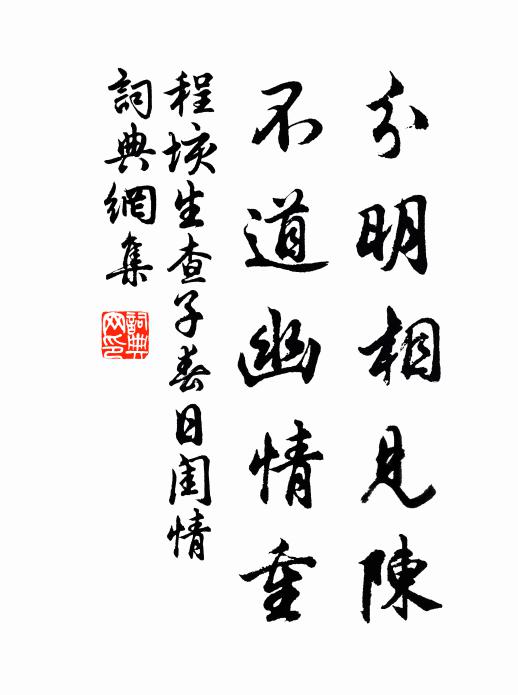 分明相見陳
不道幽情重
程垓生查子春日閨情
詞典網集
詞典
网印